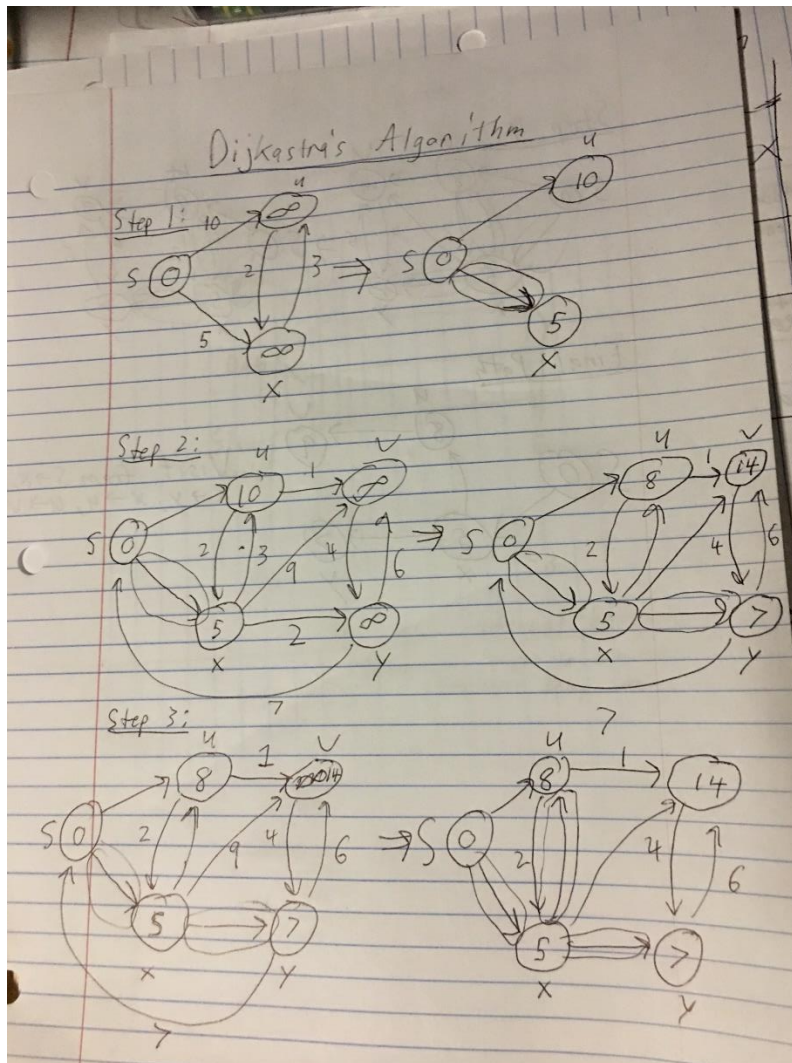 Dijkastra's Algorithm
Step 1:
10 u ∞
S 0 2 3 ⇒
5 ∞
X
u
10
S 0
5
X
Step 2:
u V
10 1 ∞
S 0 2 3 9 4 6 ⇒
5 2 ∞
X Y
7
u V
8 1 14
S 0 2 4 6
5 7
X Y
7
Step 3:
u V
8 1 14
S 0 2 9 4 6 ⇒
5 7
X Y
7
u
8 1 14
S 0 2 4 6
5 7
X Y